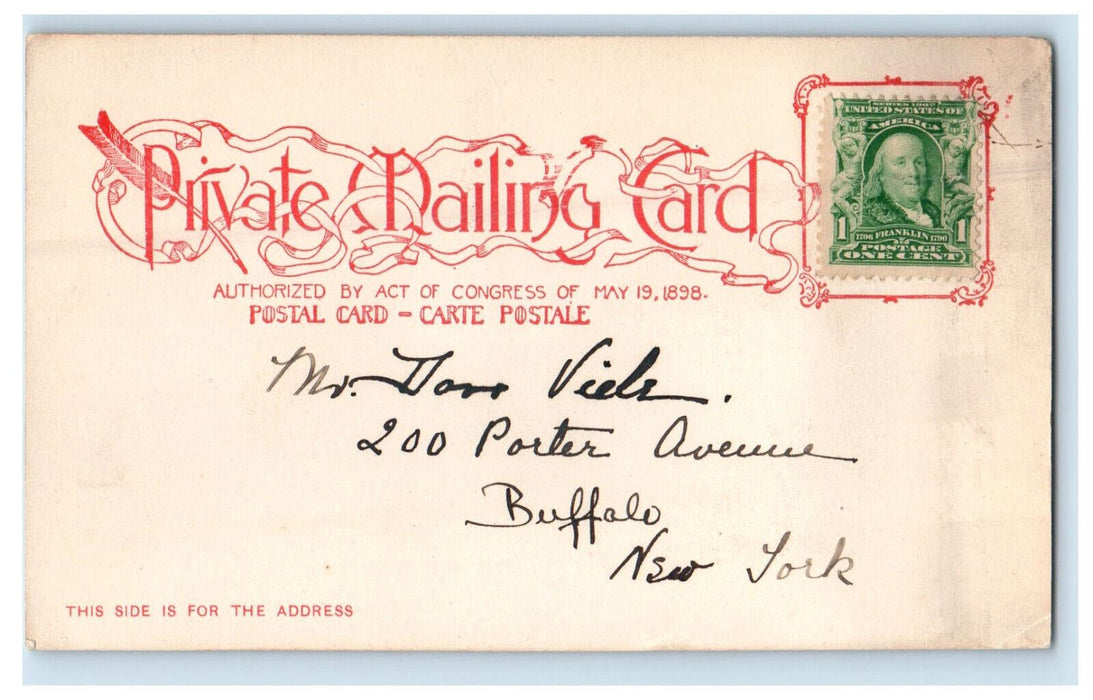 Private Mailing Card
AUTHORIZED BY ACT OF CONGRESS OF MAY 19, 1898.
POSTAL CARD - CARTE POSTALE
SERIES 1902
UNITED STATES OF
AMERICA
1706 FRANKLIN 1790
1 POSTAGE 1
ONE CENT
Mr.
200 Porter Avenue
Buffalo
New York
THIS SIDE IS FOR THE ADDRESS